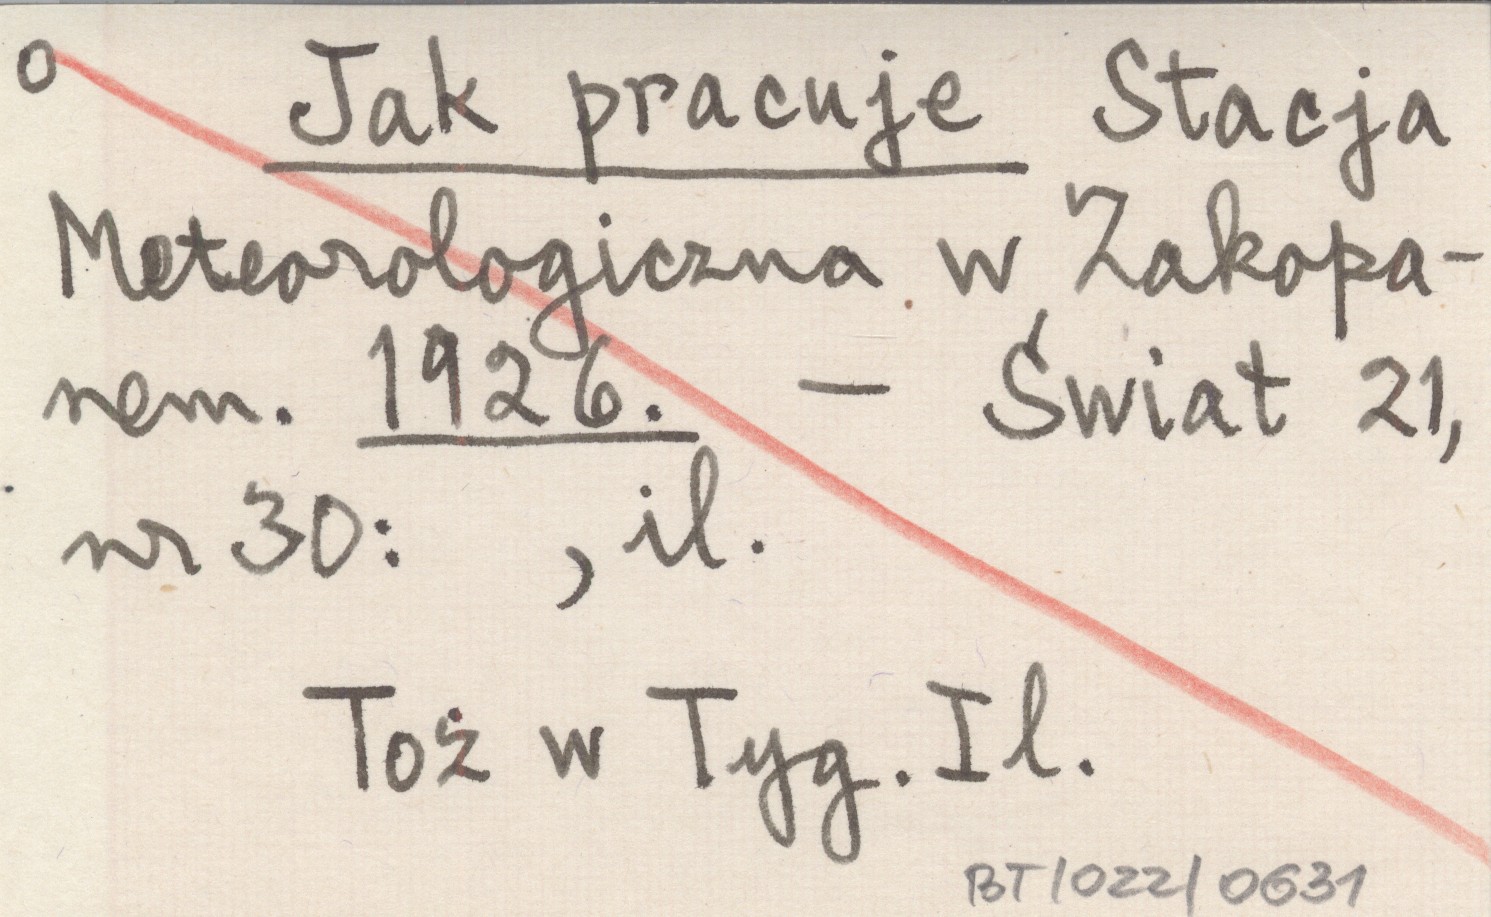 o Jak pracuje Stacja
Meteorologiczna w Zakopa-
nem. 1926. – Świat 21,
nr 30: , il.
Toż w Tyg. Il.
BT/022/0631